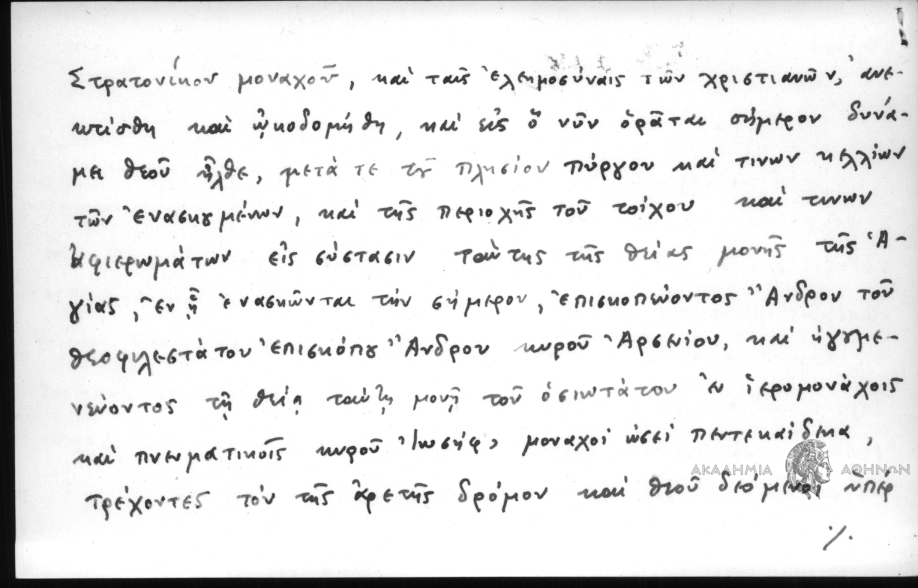 Στρατονίκου μοναχοῦ, καὶ ταῖς ἐλεημοσύναις τῶν χριστιανῶν, ἀνε-
κτίσθη καὶ ᾠκοδομήθη, καὶ εἰς ὃ νῦν ὁρᾶται σήμερον δυνά-
μει θεοῦ ἦλθε, μετά τε τοῦ πλησίον πύργου καὶ τινων κελλίων
τῶν ἐνασκουμένων, καὶ τῆς περιοχῆς τοῦ τοίχου καὶ τινων
ἀφιερωμάτων εἰς σύστασιν ταύτης τῆς θείας μονῆς τῆς Ἁ-
γίας, ἐν ᾗ ἐνασκῶνται τὴν σήμερον, ἐπισκοπεύοντος Ἄνδρου τοῦ
θεοφιλεστάτου ἐπισκόπου Ἄνδρου κυροῦ Ἀρσενίου, καὶ ἡγουμε-
νεύοντος τῇ θείᾳ ταύτῃ μονῇ τοῦ ὁσιωτάτου ἐν ἱερομονάχοις
καὶ πνευματικοῖς κυροῦ Ἰωσήφ, μοναχοὶ ὡσεὶ πεντεκαίδεκα,
τρέχοντες τὸν τῆς ἀρετῆς δρόμον καὶ θεοῦ δεόμενοι ὑπὲρ
./.
ΑΚΑΔΗΜΙΑ ΑΘΗΝΩΝ